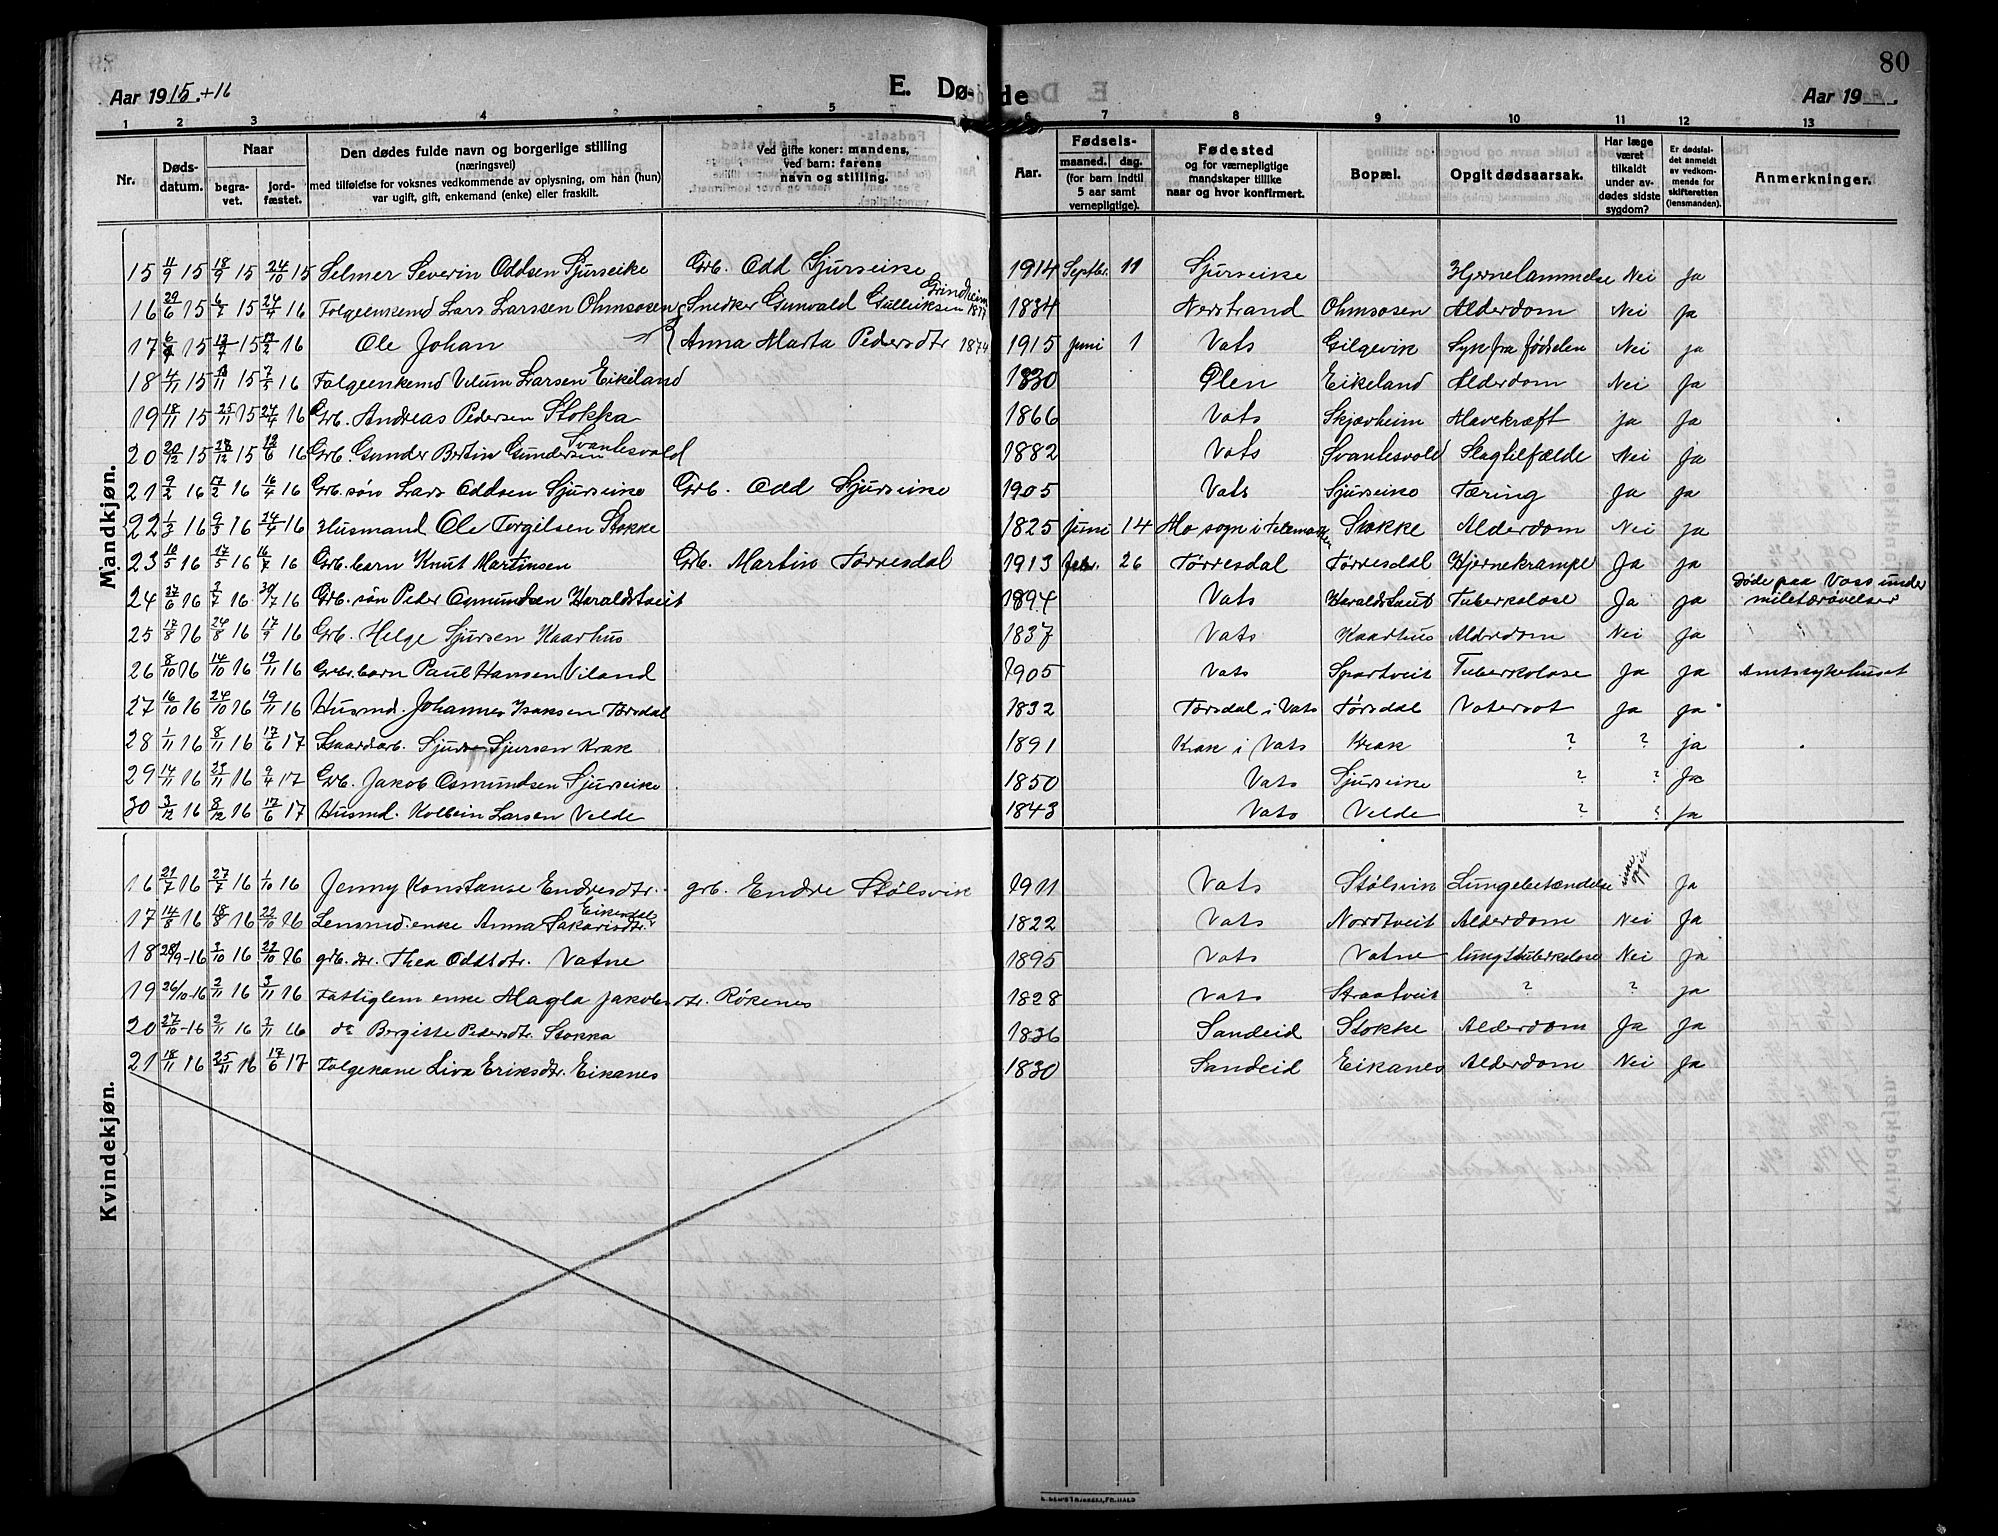 80
Aar 1915.+16
E. Dø-
de
Aar 19
1 2 3 4 5 6 7 8 9 10 11 12 13
Nr.
Døds-
datum.
Naar
begra-
vet.
jord-
fæstet.
Den dødes fulde navn og borgerlige stilling
(næringsvei)
med tilføielse for voksnes vedkommende av oplysning, om han (hun)
var ugift, gift, enkemand (enke) eller fraskilt.
Ved gifte koner: mandens,
ved barn: farens
navn og stilling.
Aar.
Fødsels-
maaned. dag.
(for barn indtil
5 aar samt
vernepligtige).
Fødested
og for værnepligtige
mandskaper tillike
naar og hvor konfirmert.
Bopæl.
Opgit dødsaarsak.
Har læge
været
tilkaldt
under av-
dødes sidste
sygdom?
Er dødsfal-
det anmeldt
av vedkom-
mende for
skifteretten
(lensmanden).
Anmerkninger.
Mandkjøn.
15 11/9 15 18/9 15 24/10 15 Selmer Severin Oddsen Sjurseike Grb. Odd Sjurseike 1914 Septbr. 11 Sjurseike Hjernelammelse Nei Ja
Grindheim
16 29/6 15 6/7 15 24/4 16 Folgeenkemd Lars Larssen Ohmsosen Snedker Gunvald Gulleiksen 1877 1834 Nerstrand Ohmsosen Alderdom Nei Ja
17 15 15 16 Ole Johan Anna Marta Pedersdtr 1874 1915 Juni 1 Vats Gilgevik Syk fra fødselen Nei ja
18 4/11 15 15 7/5 16 Folgeenkemd Larsen Eikeland 1830 Ølen Eikeland Alderdom Nei Ja
19 18/11 15 25/11 15 24/4 16 Grb. Andreas Pedersen Stokka 1866 Vats Skjævheim Mavekræft ja Ja
Svantesvold
20 20/12 15 28/12 15 16 Grb. Gunder Bertin Gundersen 1882 Vats Svantesvold Slagtilfælde Nei Ja
21 9/2 16 17/2 16 16/4 16 Grb. søn Lars Oddsen Sjurseike Grb. Odd Sjurseike 1905 Vats Sjurseike Tæring Ja Ja
22 1/3 16 9/3 16 24/4 16 Husmand Ole Torgilsen Stokke 1825 Juni 14 Mo sogn i Telemarken Stokke Alderdom Nei ja
23 10/5 16 17/5 16 16/7 16 Grb. barn Knut Martinsen Grb. Martin Tørresdal 1913 febr. 26 Tørresdal Tørresdal Hjernekrampe Ja ja
Døde paa Voss under
24 27/6 16 3/7 16 30/7 16 Grb. søn Peder Osmundsen Haraldstveit 1894 Vats Haraldstveit Tuberkolose Ja ja militærøvelser
25 17/8 16 24/8 16 17/9 16 Grb. Helge Sjursen Kaarhus 1837 Vats Kaarhus Alderdom Nei Ja
26 8/10 16 14/10 16 19/11 16 Grb. barn Paul Hansen Viland 1905 Vats Spartveit Tuberkolose Ja Ja Amtssykehuset
27 16/10 16 24/10 16 19/11 16 Husmd. Johannes Isaksen Torsdal 1832 Torsdal i Vats Tørsdal Vatersot Ja ja
28 1/11 16 8/11 16 17/6 17 Gaardarb. Sjurs Sjursen Krak 1891 Krak i Vats Krak ? ? ja
29 14/11 16 23/11 16 9/4 17 Grb. Jakob Osmundsen Sjurseike 1850 Vats Sjurseike ? ? Ja
30 3/12 16 8/12 16 17/6 17 Husmd. Kolbein Larsen Velde 1843 Vats Velde ? ? Ja
Kvindekjøn.
16 21/7 16 27/7 16 1/10 16 Jenny Konstanse Endresdtr. grb. Endre Stølsvik 1911 Vats Stølsvik Lungebetændelse Ja
Eikendals
17 14/8 16 18/8 16 22/10 16 Lensmd. enke Anna Sakariasdtr. 1822 Vats Nordtveit Alderdom Nei Ja
18 28/9-16 3/10 16 22/10 16 grb. dr. Thea Oddsdtr. Vatne 1895 Vats Vatne lungetuberkolose Nei Ja
19 26/10-16 2/11 16 3/11 16 Fattiglem enke Magla Jakobsdtr. Røkenes 1828 Vats Straatveit ? ? ja
20 27/10-16 2/11 16 3/11 16 do Bergitte Pedersdtr. Stokka 1836 Sandeid Stokke Alderdom Ja Ja
21 18/11 16 25/11 16 17/6 17 Folgekone Liva Eriksdtr. Eikanes 1830 Sandeid Eikanes Alderdom Nei Ja